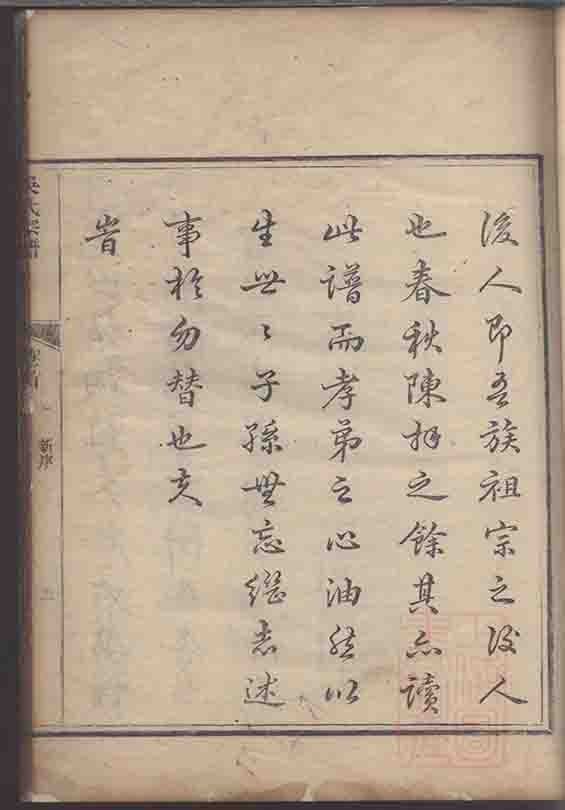 後人即吾族祖宗之後人
也春秋陳拜之餘其亦讀
此譜而孝弟之心油然以
生世〻子孫無忘繼志述
事於勿替也夫
旹
吳氏宗譜
新序